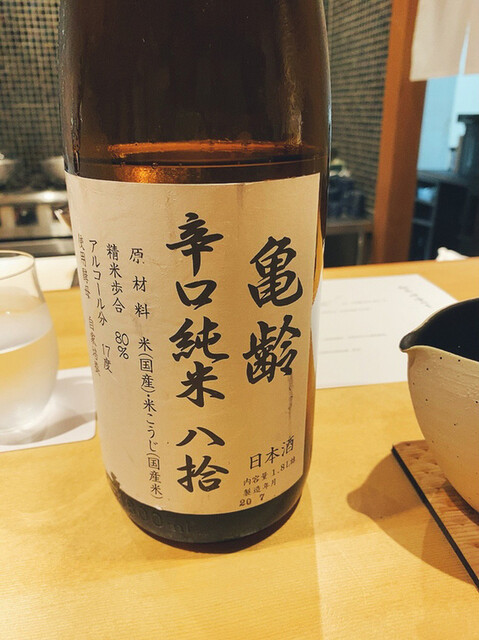 亀齢
辛口純米 八拾
原材料 米(国産)・米こうじ(国産米)
精米歩合 80%
アルコール分 17度
日本酒
内容量1.8L詰
製造年月
20 7